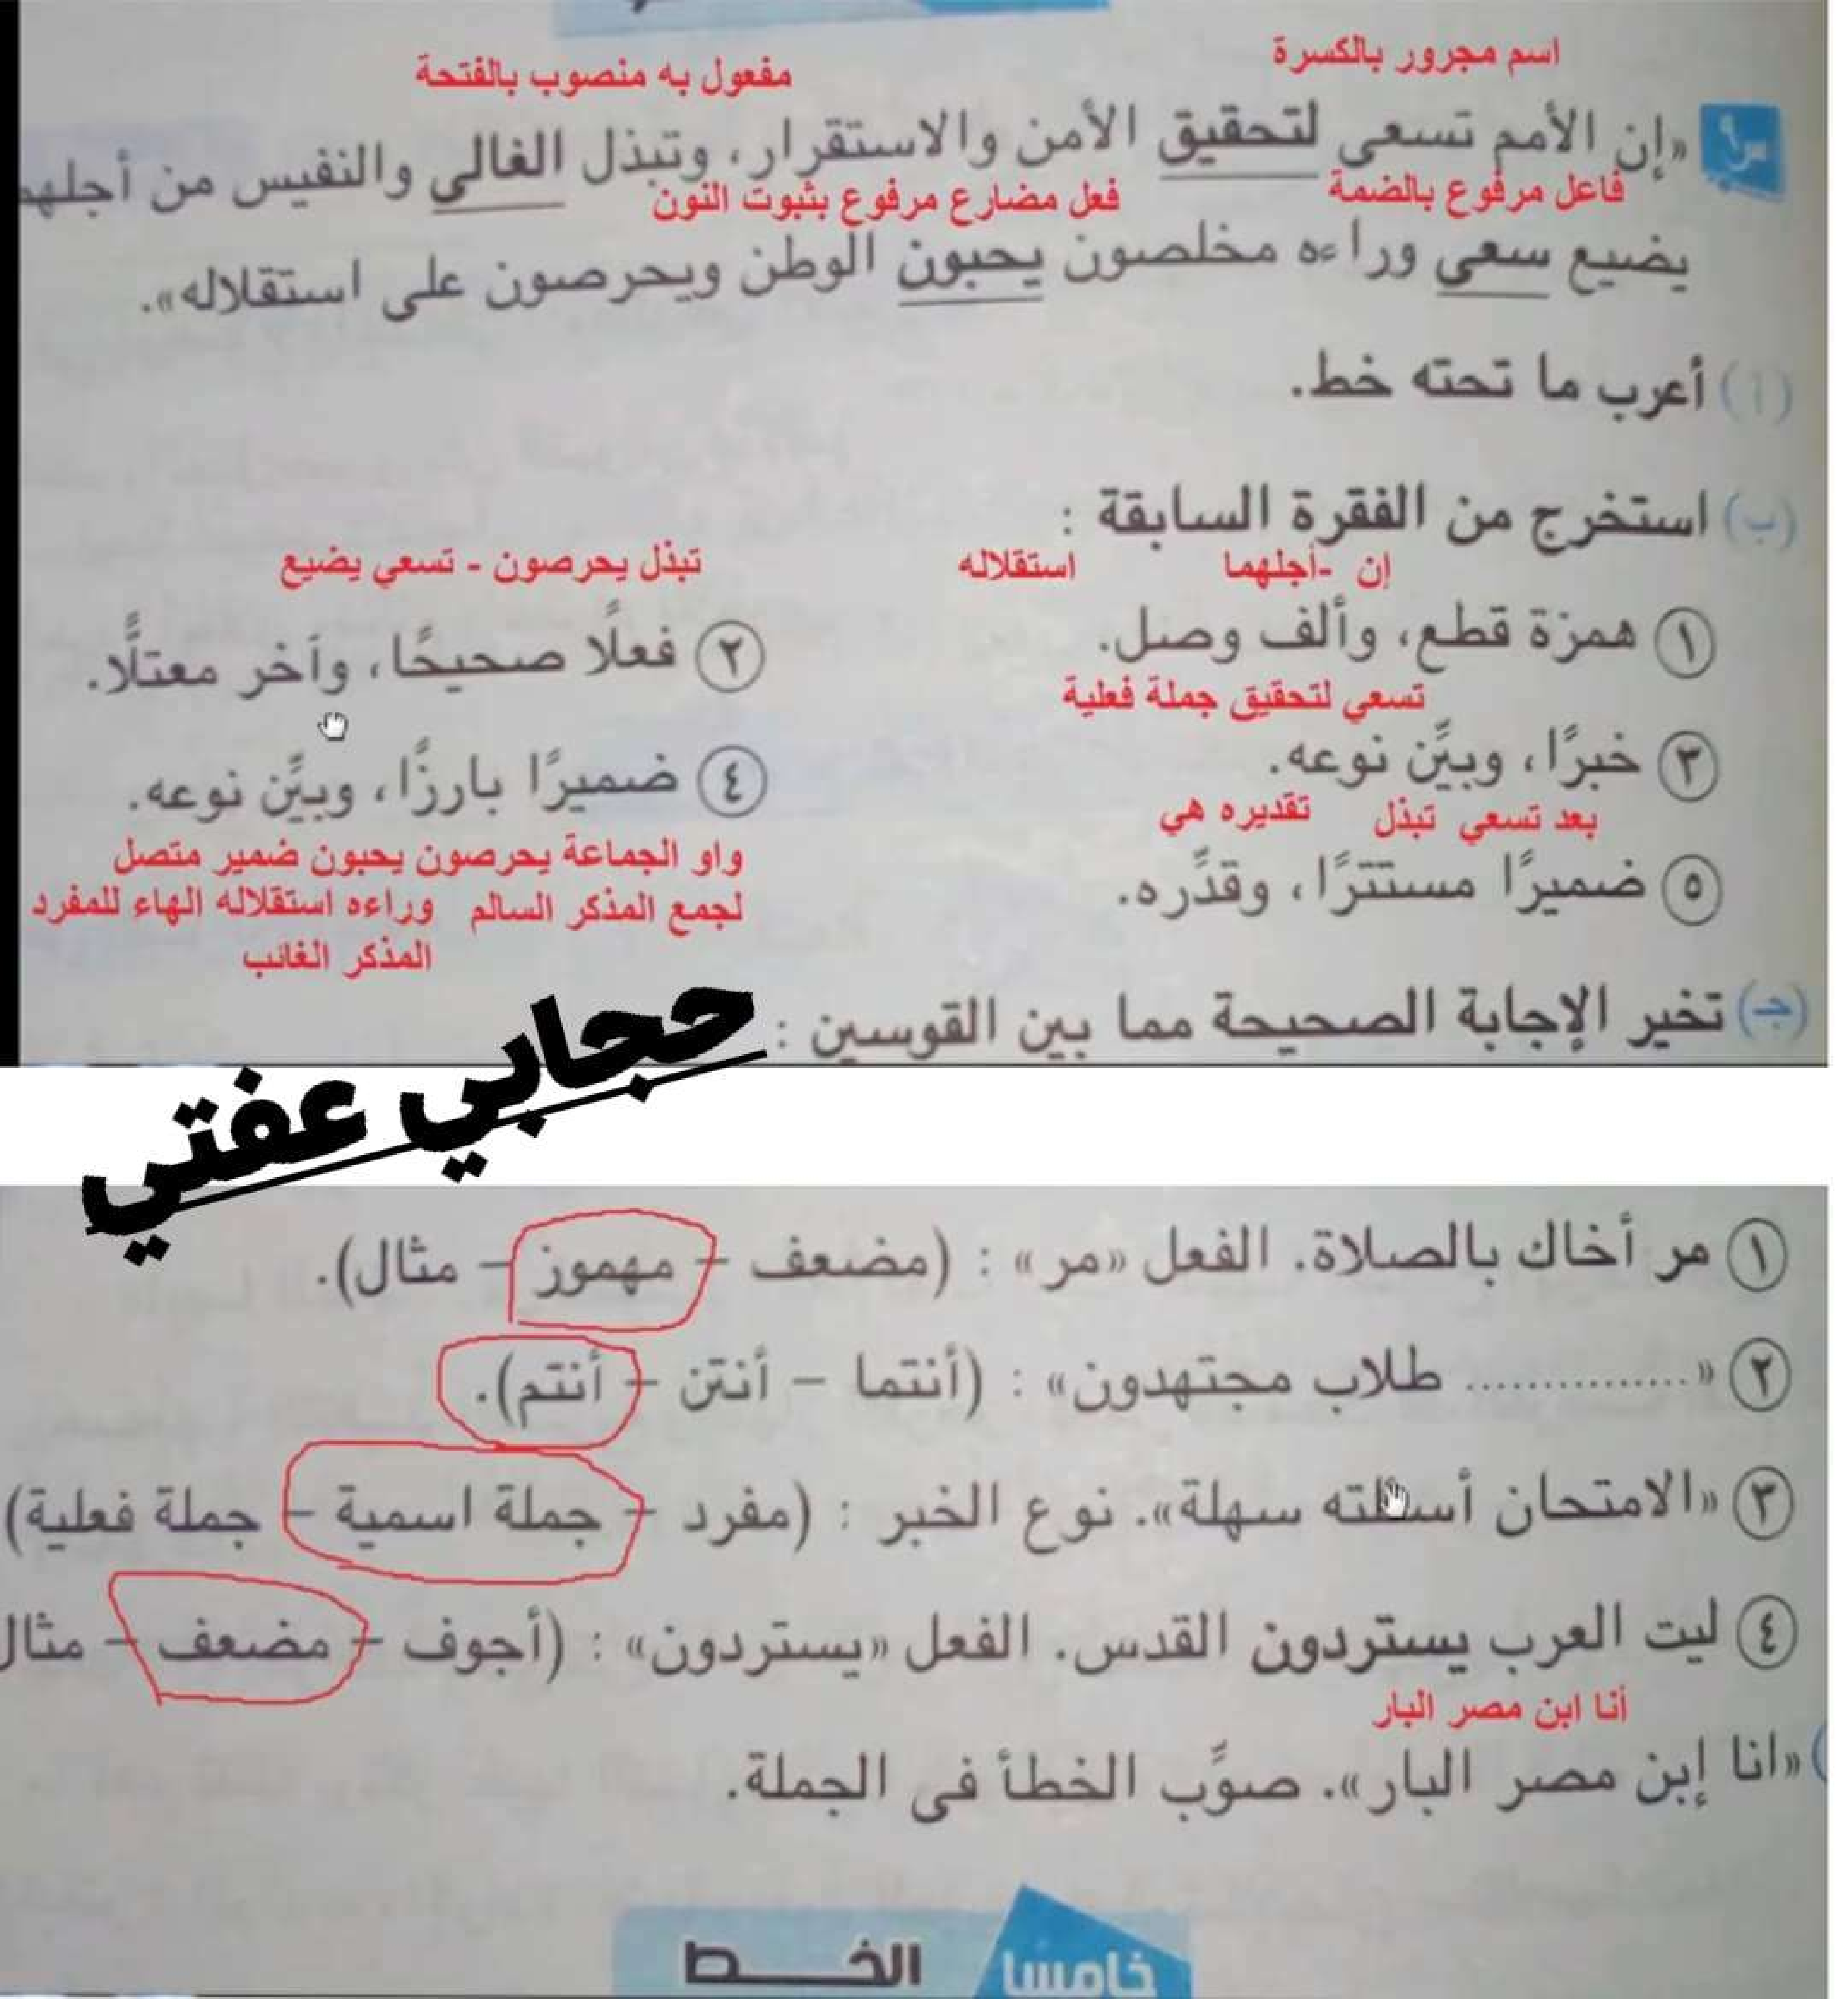 اسم مجرور بالكسرة
مفعول به منصوب بالفتحة
«إن الأمم تسعى لتحقيق الأمن والاستقرار، وتبذل الغالى والنفيس من أجلهم
فاعل مرفوع بالضمة
فعل مضارع مرفوع بثبوت النون
يضيع سعي وراءه مخلصون يحبون الوطن ويحرصون على استقلاله».
(أ) أعرب ما تحته خط.
(ب) استخرج من الفقرة السابقة :
إن -أجلهما استقلاله
تبذل يحرصون - تسعي يضيع
١ همزة قطع، وألف وصل.
٢ فعلًا صحيحًا، وآخر معتلًّا.
تسعي لتحقيق جملة فعلية
٣ خبرًا، وبيِّن نوعه.
٤ ضميرًا بارزًا، وبيِّن نوعه.
بعد تسعي تبذل تقديره هي
واو الجماعة يحرصون يحبون ضمير متصل
٥ ضميرًا مستترًا، وقدِّره.
لجمع المذكر السالم وراءه استقلاله الهاء للمفرد
المذكر الغائب
(جـ) تخير الإجابة الصحيحة مما بين القوسين :
حجابي عفتي
١ مر أخاك بالصلاة. الفعل «مر» : (مضعف - مهموز - مثال).
٢ «............... طلاب مجتهدون» : (أنتما - أنتن - أنتم).
٣ «الامتحان أسئلته سهلة». نوع الخبر : (مفرد - جملة اسمية - جملة فعلية)
٤ ليت العرب يستردون القدس. الفعل «يستردون» : (أجوف - مضعف - مثال
أنا ابن مصر البار
) «انا إبن مصر البار». صوِّب الخطأ فى الجملة.
خامسا الخــــط